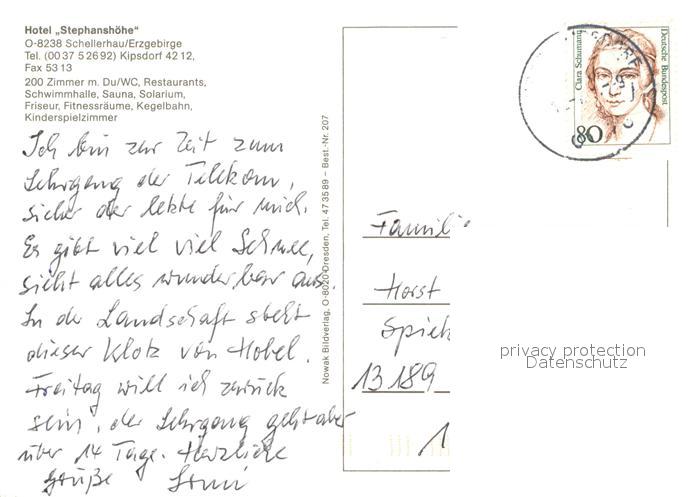 Hotel „Stephanshöhe“
O-8238 Schellerhau/Erzgebirge
Tel. (00 37 5 26 92) Kipsdorf 42 12,
Fax 53 13
200 Zimmer m. Du/WC, Restaurants,
Schwimmhalle, Sauna, Solarium,
Friseur, Fitnessräume, Kegelbahn,
Kinderspielzimmer
Ich bin zur Zeit zum
Lehrgang der Telekom,
sicher der letzte für mich.
Es gibt viel viel Schnee,
sieht alles wunderbar aus.
In der Landschaft steht
dieser Klotz von Hotel.
Freitag will ich zurück
sein, der Lehrgang geht aber
über 14 Tage. Herzliche
Grüße
Nowak Bildverlag, O-8020 Dresden, Tel. 47 35 89 – Best.-Nr. 207
Clara Schumann
Deutsche Bundespost
80
Famili
Horst
Spiek
13189
1
privacy protection
Datenschutz